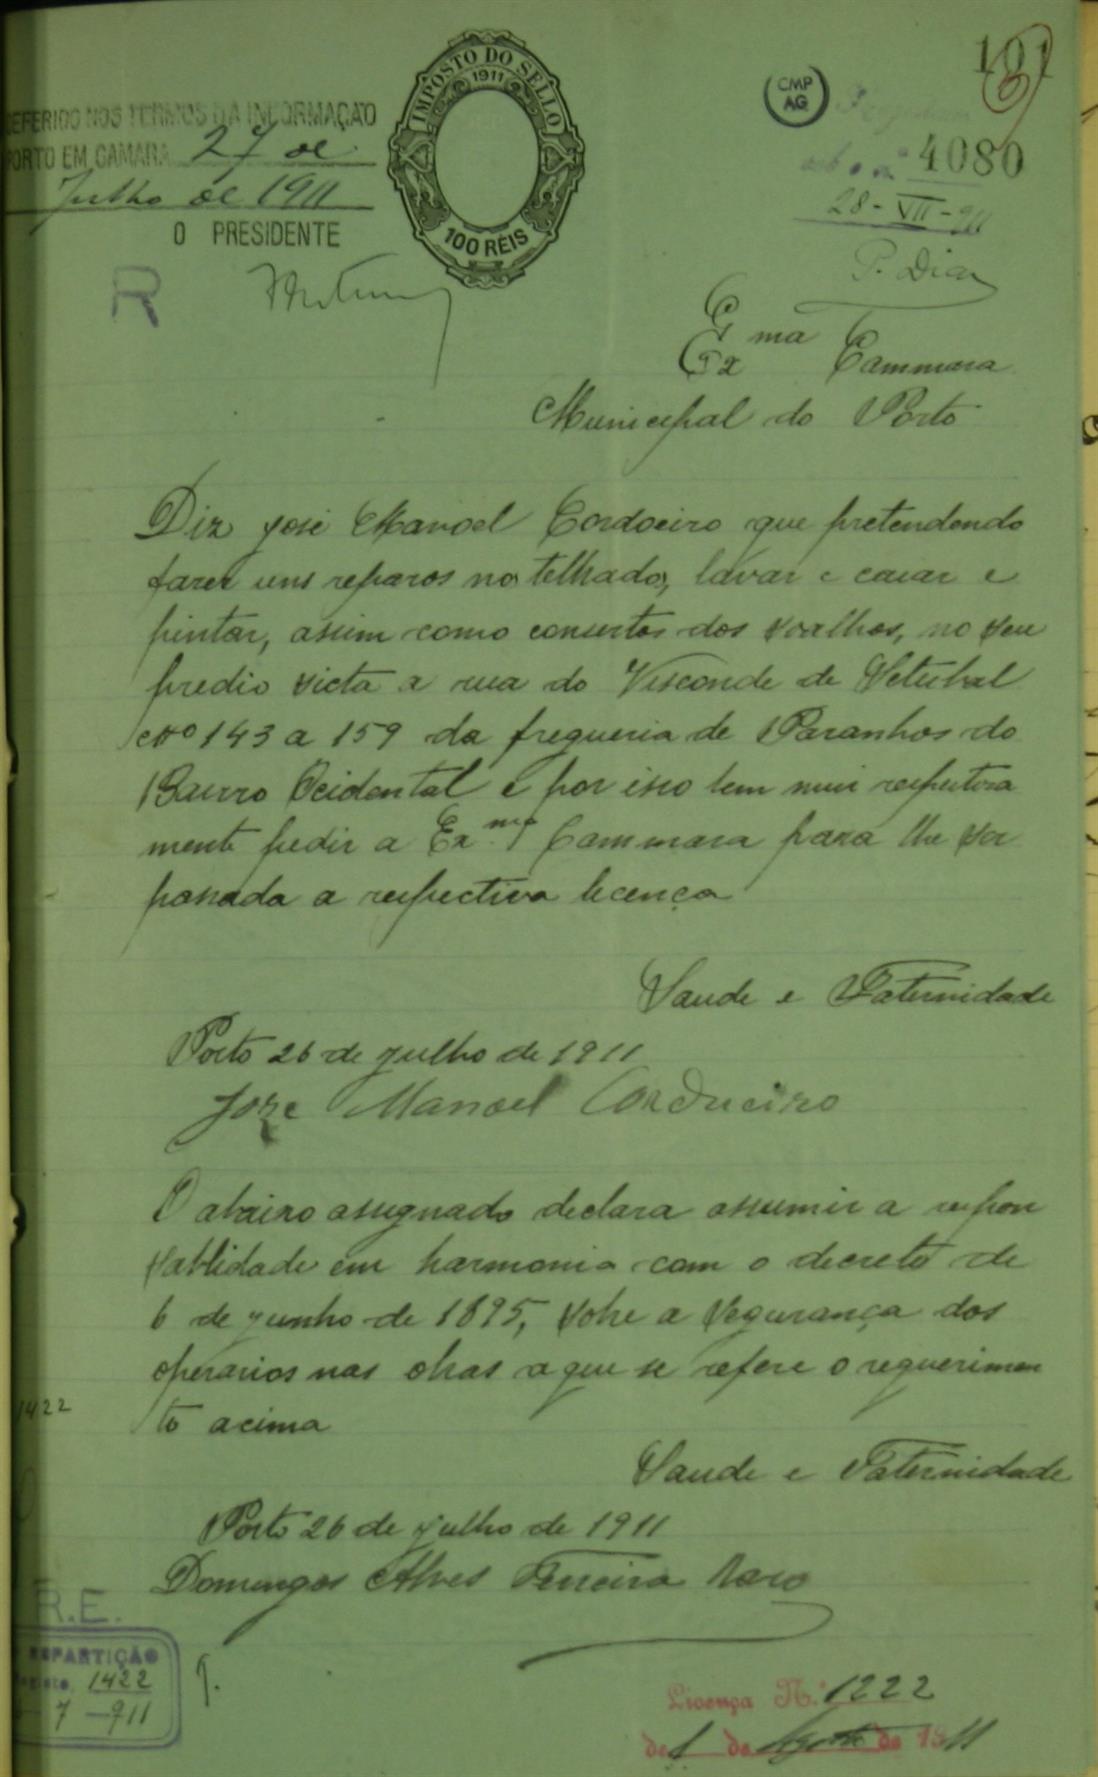 101
DEFERIDO NOS TERMOS DA INFORMAÇÃO
PORTO EM CAMARA 27 de
Julho de 1911
O PRESIDENTE
R
IMPOSTO DO SELLO
1911
100 RÉIS
CMP
AG
sob o nº 4080
28-VII-911
P. Dias
Exma Cammara
Municipal do Porto
Diz José Manoel Cordoeiro que pretendendo
fazer uns reparos no telhado, lavar e caiar e
pintar, assim como consertos dos soalhos, no seu
predio sicta a rua do Visconde de Setubal
Nº 143 a 159 da freguesia de Paranhos do
Bairro Ocidental e por isso vem mui respeitosa
mente pedir a Exma Cammara para lhe ser
passada a respectiva licença
Saude e Fraternidade
Porto 26 de julho de 1911
Joze Manoel Cordueiro
O abaixo assignado declara assumir a respon
sablidade em harmonia com o decreto de
6 de junho de 1895, sobre a segurança dos
operarios nas obras a que se refere o requerimen
to acima
1422
Saude e Fraternidade
Porto 26 de julho de 1911
Domingos Alves Ferreira Novo
R.E.
REPARTIÇÃO
Registo 1422
7-911
Licença N.º 1222
de 1 de Agosto de 1911